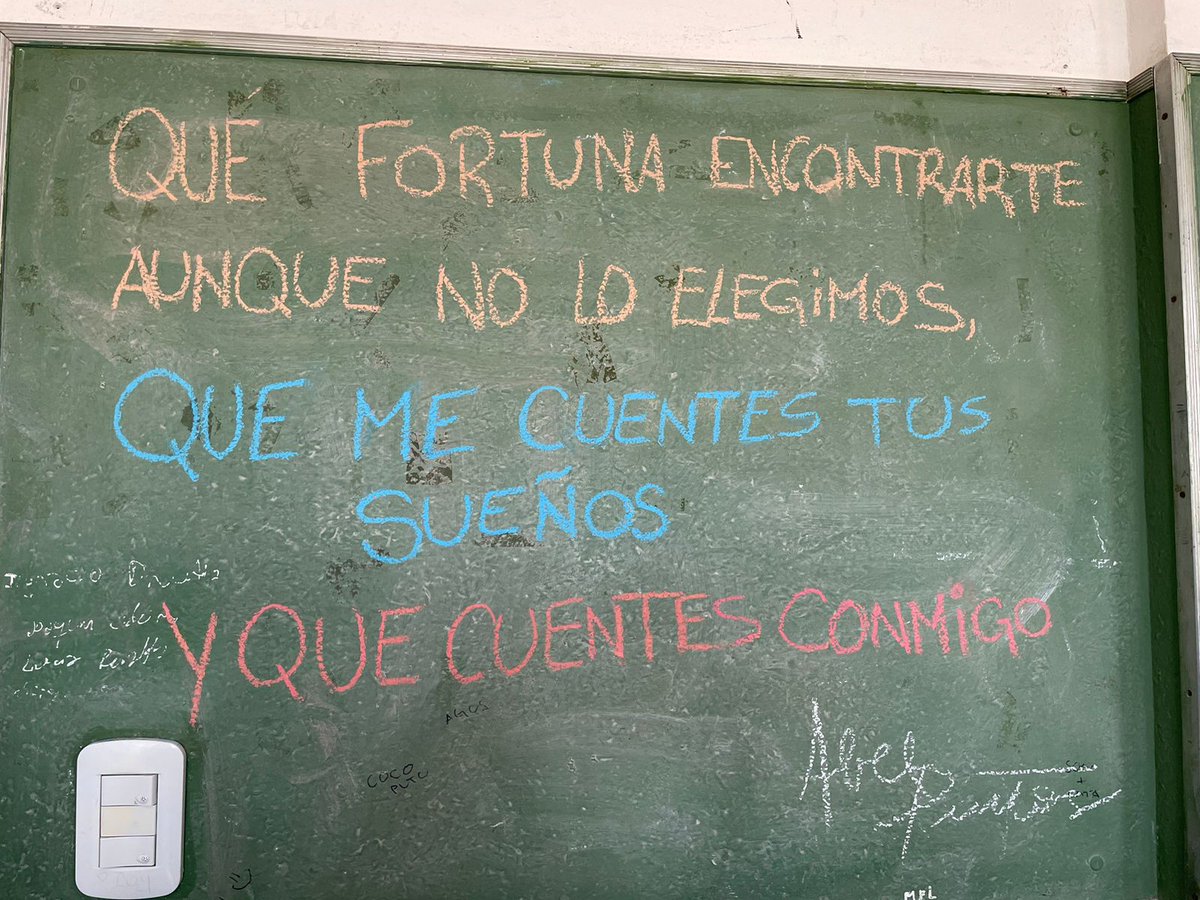 QUE FORTUNA ENCONTRARTE
AUNQUE NO LO ELEGIMOS,
QUE ME CUENTES TUS
SUEÑOS
Y QUE CUENTES CONMIGO
AGOS
COCO
PUTO
Abel
Pintos
MFL